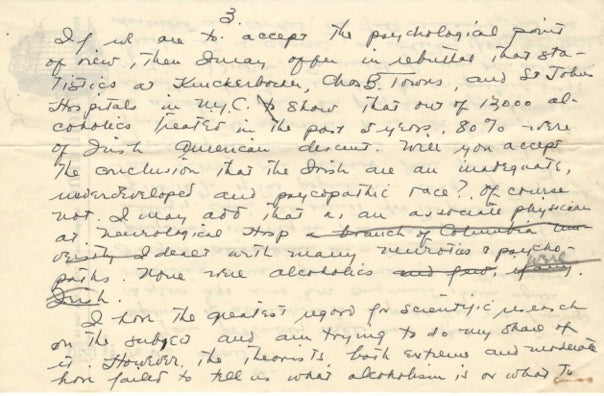 3
If we are to accept the psychological point
of view, then I may offer in rebuttal that sta-
tistics at Knickerbocker, Chas B. Towns, and St Johns
Hospitals in N.Y.C. to show that out of 13000 al-
coholics treated in the past 5 years, 80% were
of Irish American descent. Will you accept
the conclusion that the Irish are an inadequate,
underdeveloped and psycopathic race? Of course
not. I may add that as an associate physician
at Neurological Hosp a branch of Columbia Uni
versity I dealt with many neurotics & psycho-
paths. None were alcoholics and few, if any, were
Irish.
I have the greatest regard for scientific research
on the subject and am trying to do my share of
it. However, the theorists, both extreme and moderate
have failed to tell us what alcoholism is or what to